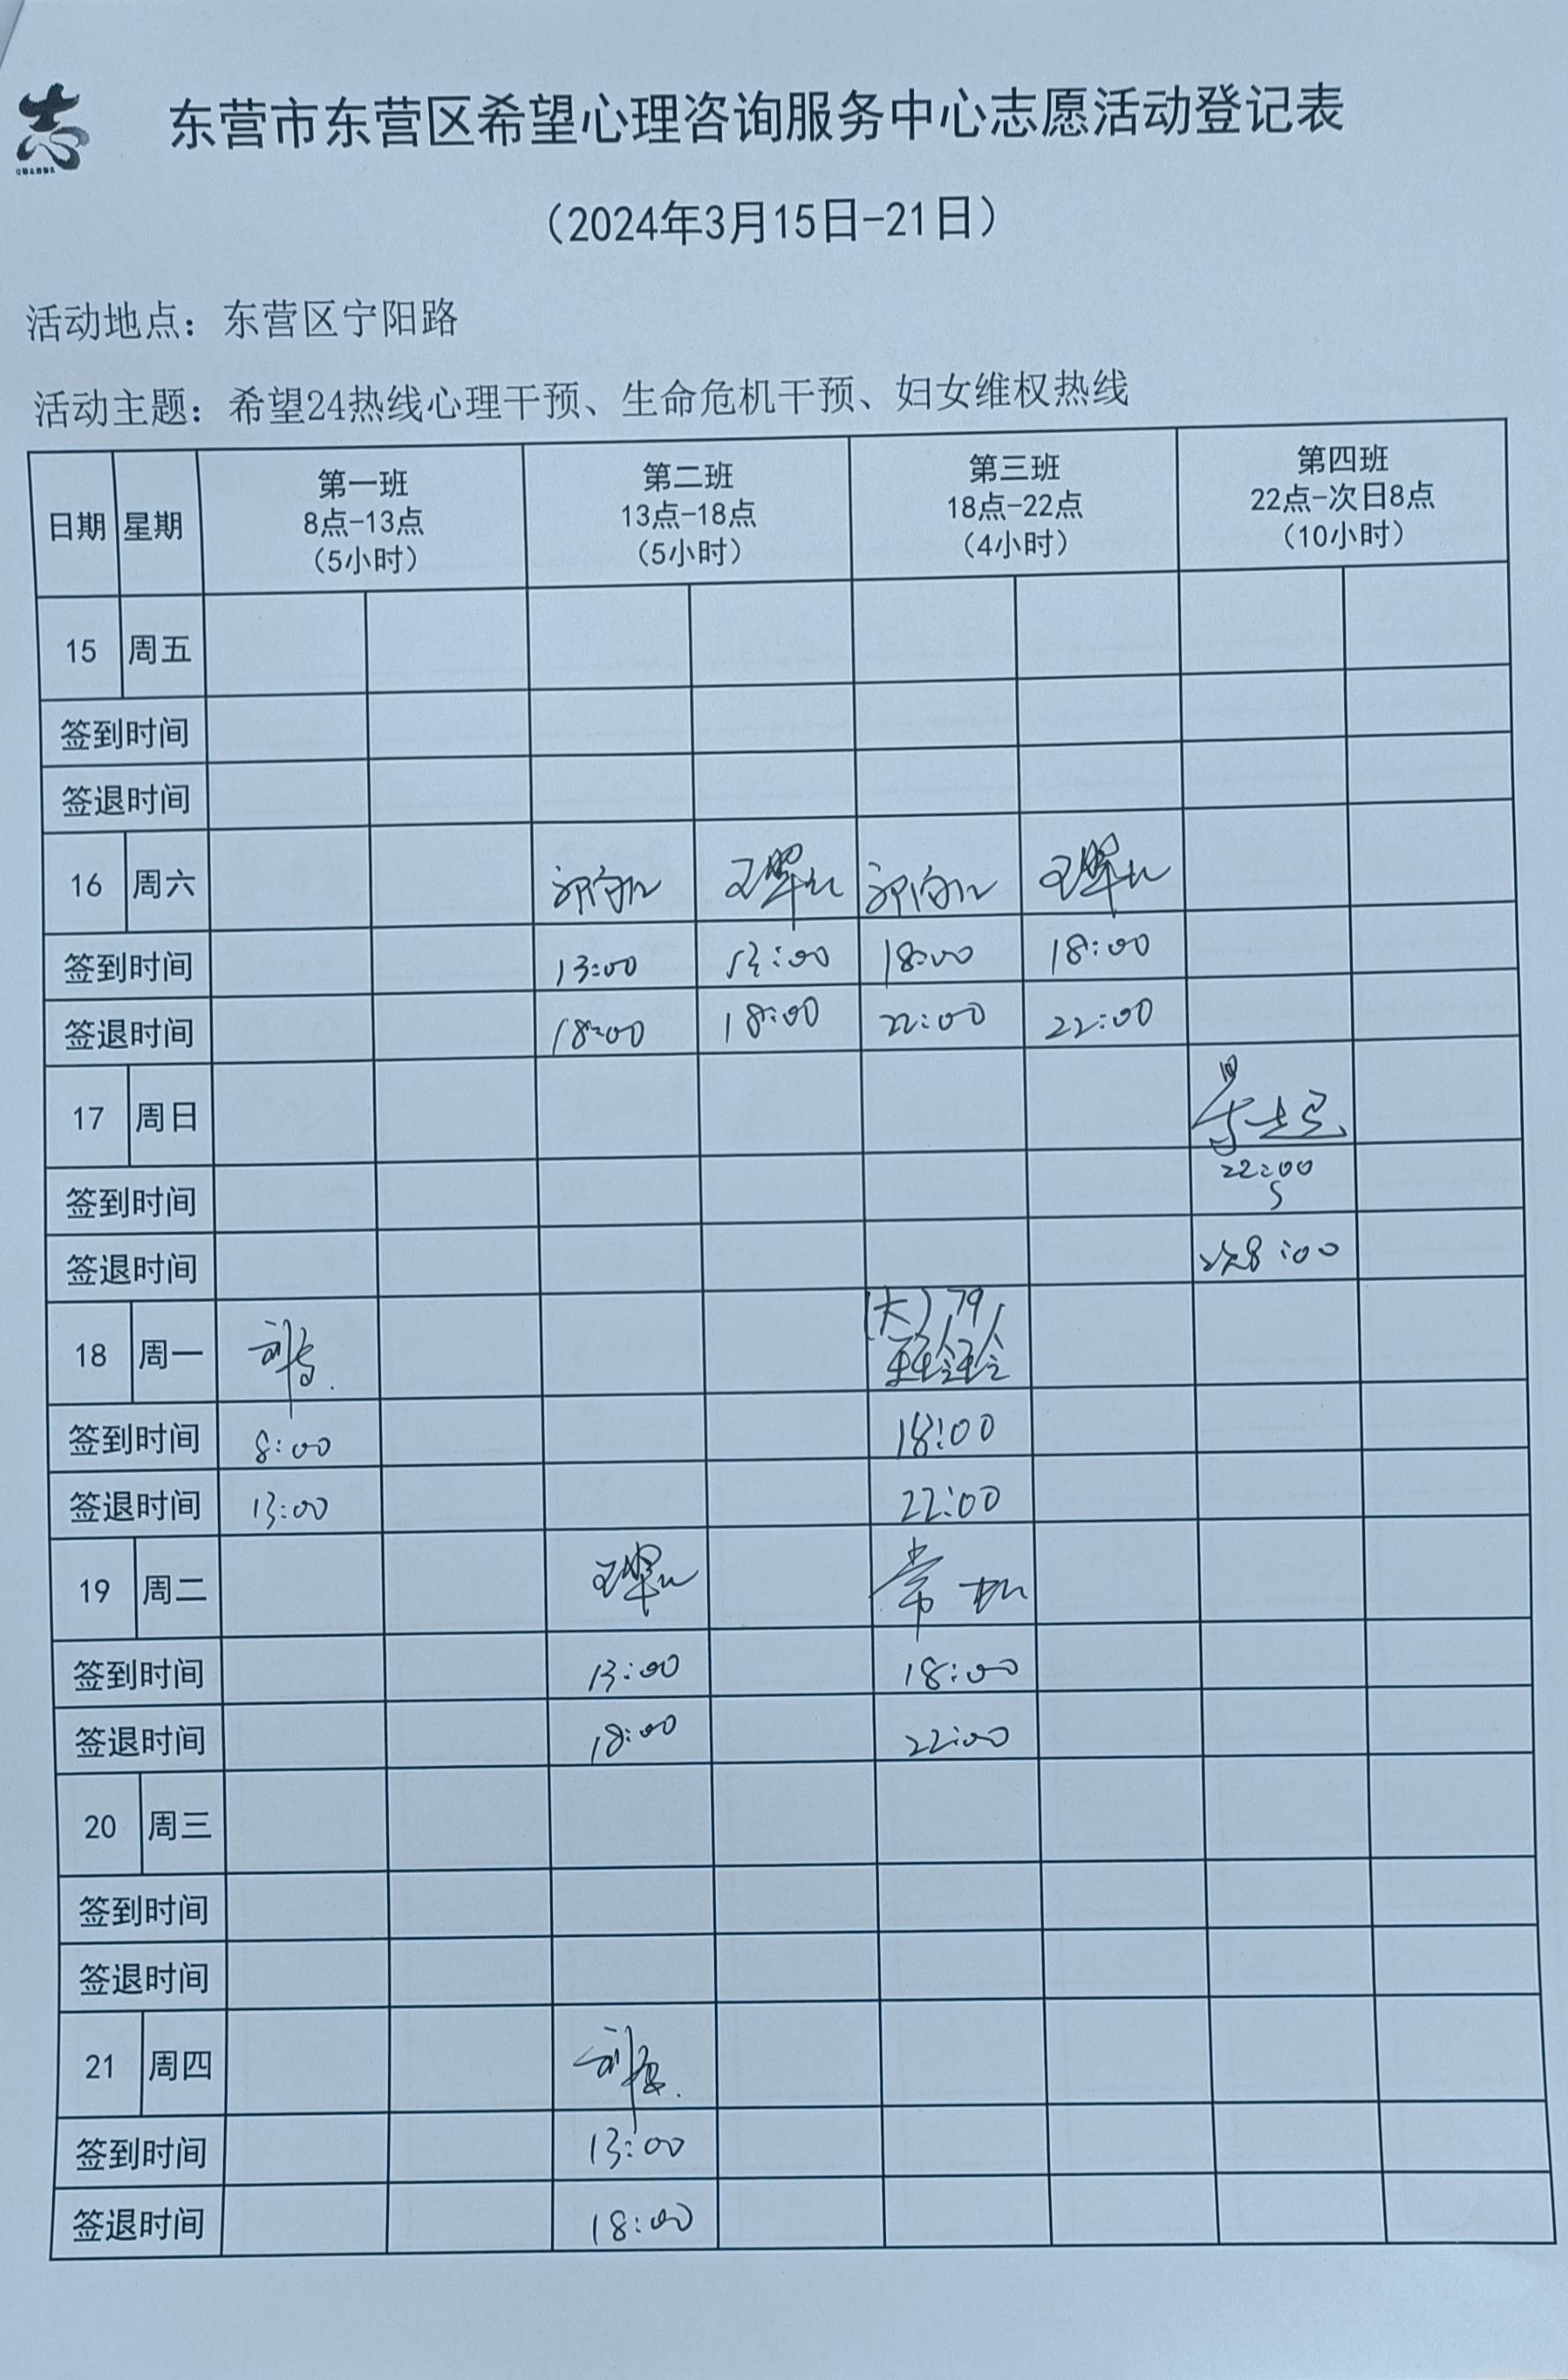 志
东营市东营区希望心理咨询服务中心志愿活动登记表
（2024年3月15日-21日）
活动地点：东营区宁阳路
活动主题：希望24热线心理干预、生命危机干预、妇女维权热线
日期 星期 第一班 8点-13点 （5小时） 第二班 13点-18点 （5小时） 第三班 18点-22点 （4小时） 第四班 22点-次日8点 （10小时）
15 周五
签到时间
签退时间
16 周六
签到时间 13:00 13:00 18:00 18:00
签退时间 18:00 18:00 22:00 22:00
17 周日
签到时间 22:00
签退时间 次8:00
18 周一
签到时间 8:00 18:00
签退时间 13:00 22:00
19 周二 常
签到时间 13:00 18:00
签退时间 18:00 22:00
20 周三
签到时间
签退时间
21 周四
签到时间 13:00
签退时间 18:00